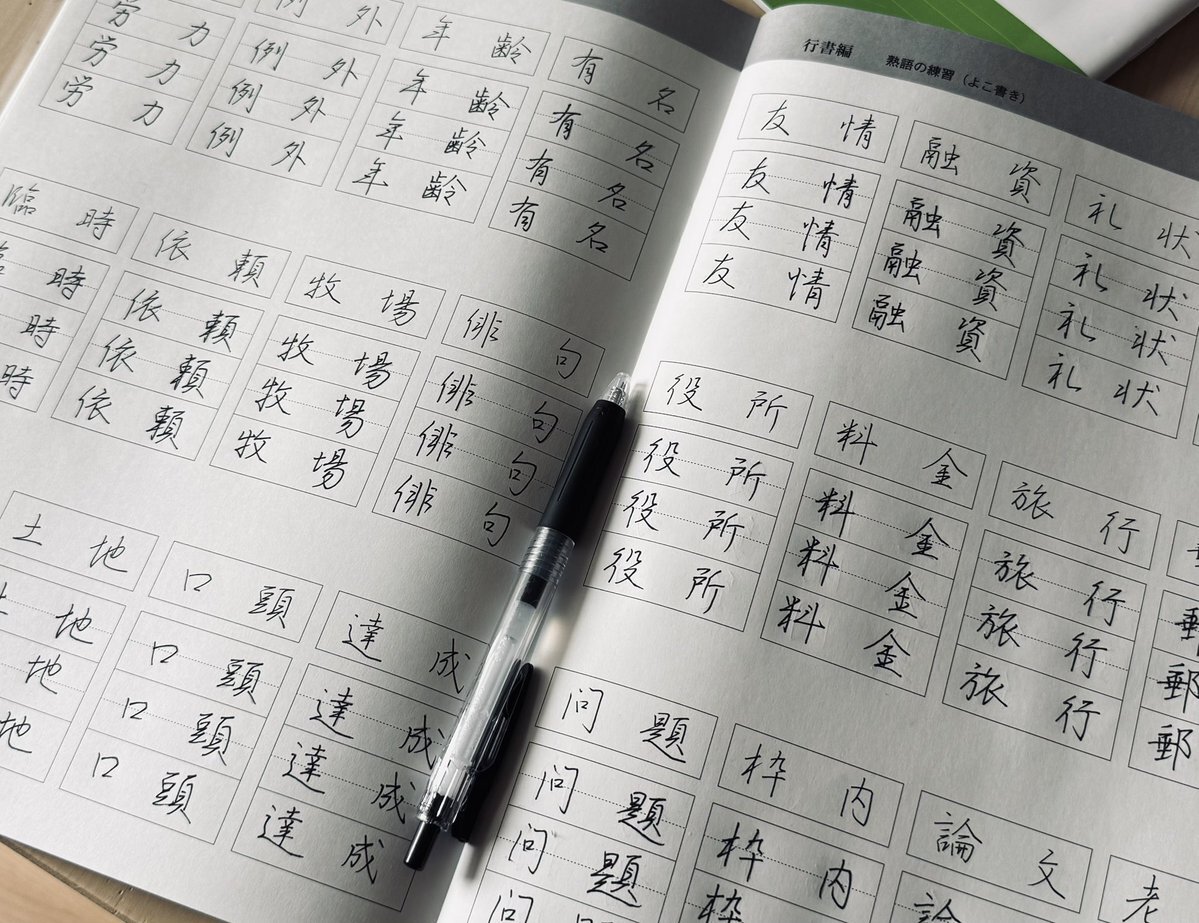 労力
労力
労力
例外
例外
例外
例外
年齢
年齢
年齢
年齢
有名
有名
有名
有名
臨時
時
時
時
依頼
依頼
依頼
依頼
牧場
牧場
牧場
牧場
俳句
俳句
俳句
俳句
土地
土地
地
地
口頭
口頭
口頭
口頭
達成
達成
達成
達成
行書編 熟語の練習（よこ書き）
友情
友情
友情
友情
融資
融資
融資
融資
礼状
礼状
礼状
礼状
役所
役所
役所
役所
料金
料金
料金
料金
旅行
旅行
旅行
旅行
郵
郵
問題
問題
問題
問
枠内
枠内
枠
論文